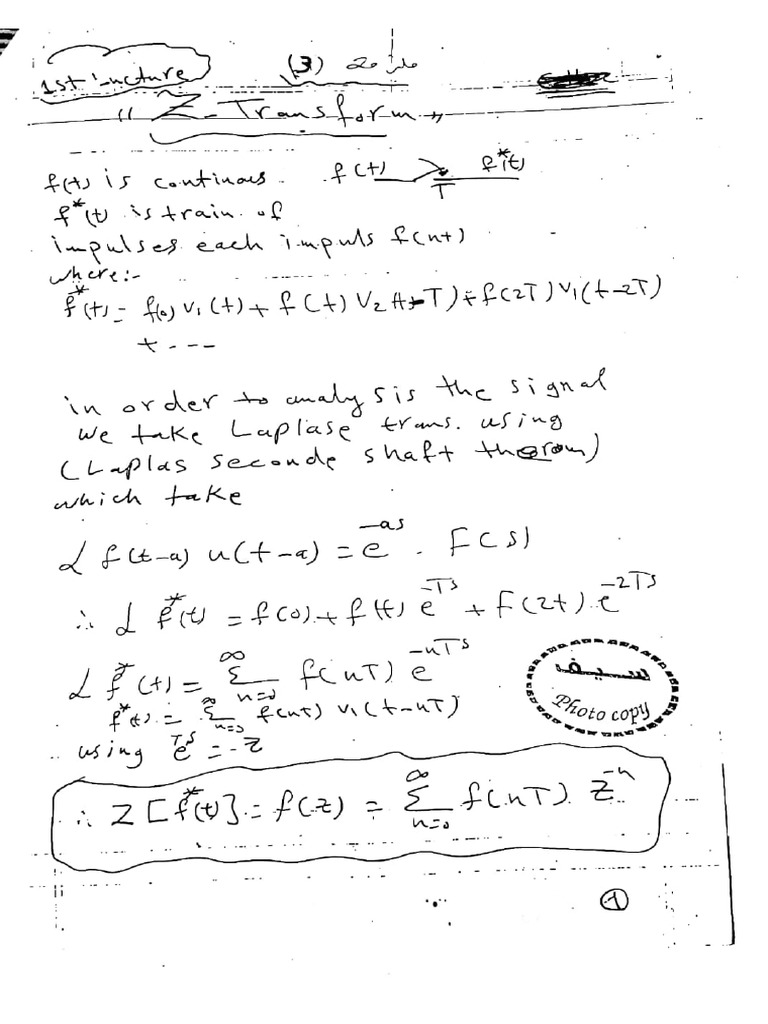 1st Lucture
(3) ملزمة
" Z-Transform "
f(t) is continous. f(t) T f*(t)
f*(t) is train of
impulses each impuls f(nt)
where:-
f*(t) = f(o) v₁(t) + f(t) V₂(t-T) + f(2T) v₁(t-2T)
+ ---
in order to analysis the signal
we take Laplase trans. using
(Laplas seconde shaft therom)
which take
ℒ f(t-a) u(t-a) = e^-as . F(s)
∴ ℒ f*(t) = f(o) + f(t) e^-Ts + F(2t). e^-2Ts
ℒ f*(t) = ∞ Σ n=0 f(nT) e^-nTs
f*(t) = ∞ Σ n=0 f(nT) v₁(t-nT)
using e^Ts = z
∴ Z [f*(t)] = f(z) = ∞ Σ n=0 f(nT) z^-n
سيف
Photo copy
1